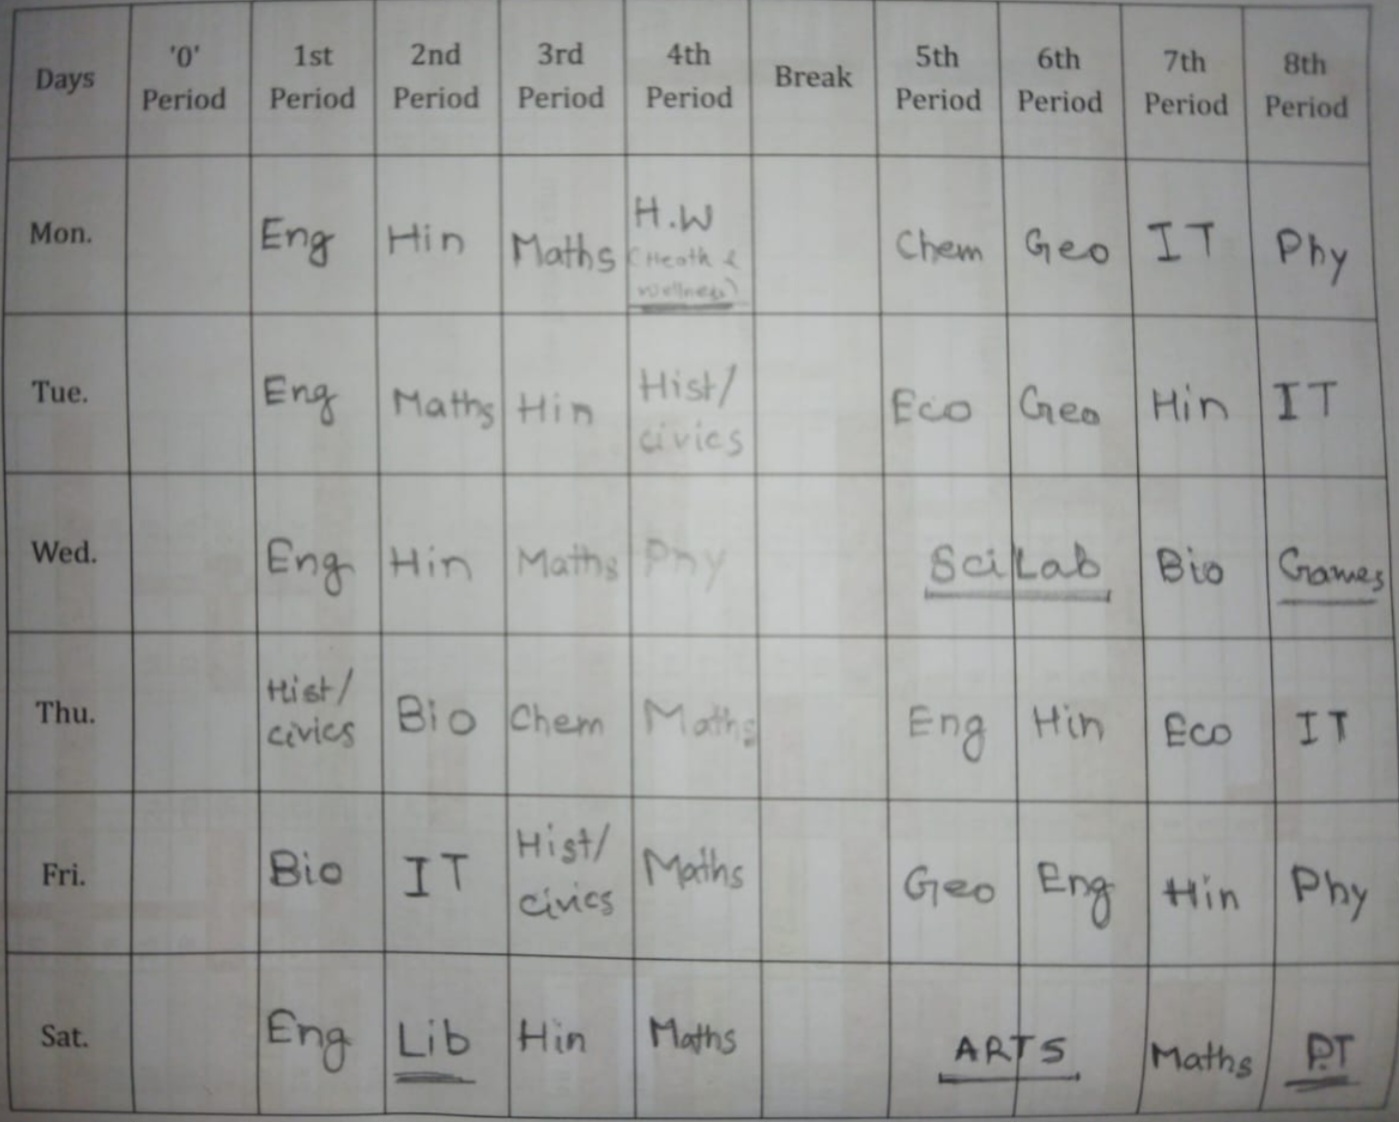 Days '0' Period 1st Period 2nd Period 3rd Period 4th Period Break 5th Period 6th Period 7th Period 8th Period
Mon. Eng Hin Maths H.W (Heath & wellness) Chem Geo IT Phy
Tue. Eng Maths Hin Hist/ civics Eco Geo Hin IT
Wed. Eng Hin Maths Phy Sci Lab Bio Games
Thu. Hist/ civics Bio Chem Maths Eng Hin Eco IT
Fri. Bio IT Hist/ civics Maths Geo Eng Hin Phy
Sat. Eng Lib Hin Maths ARTS Maths P.T